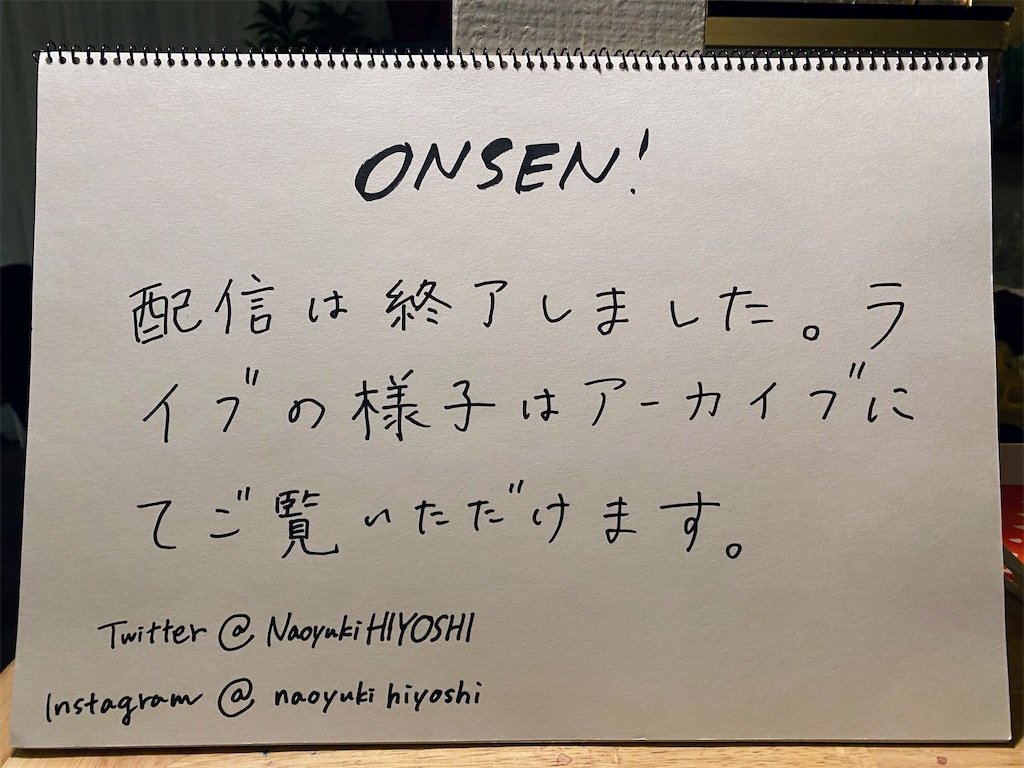 ONSEN!
配信は終了しました。ラ
イブの様子はアーカイブに
てご覧いただけます。
Twitter @ NaoyukiHIYOSHI
Instagram @ naoyukihiyoshi